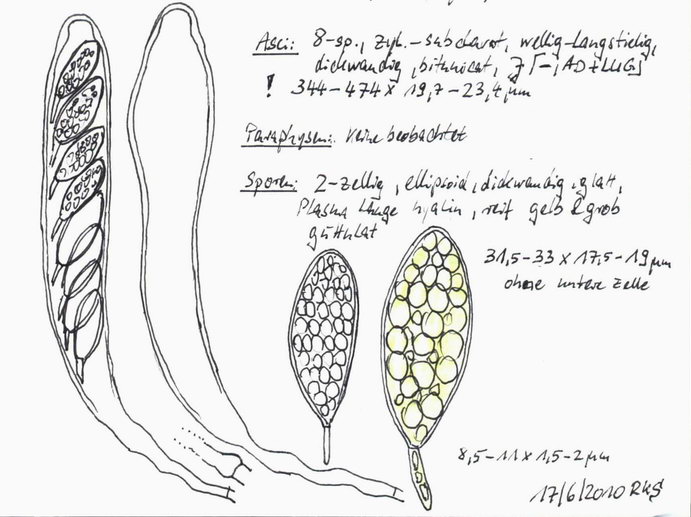 Asci: 8-sp., zyl.-subclavat, wellig-langstielig,
dickwandig, bitunicat, J [-, AD + LUG]
! 344-474 x 19,7-23,4 µm
Paraphysen: keine beobachtet
Sporen: 2-zellig, ellipsoid, dickwandig, glatt,
Plasma lange hyalin, reif gelb & grob
guttulat
31,5-33 x 17,5-19 µm
ohne untere Zelle
8,5-11 x 1,5-2 µm
17/6/2010